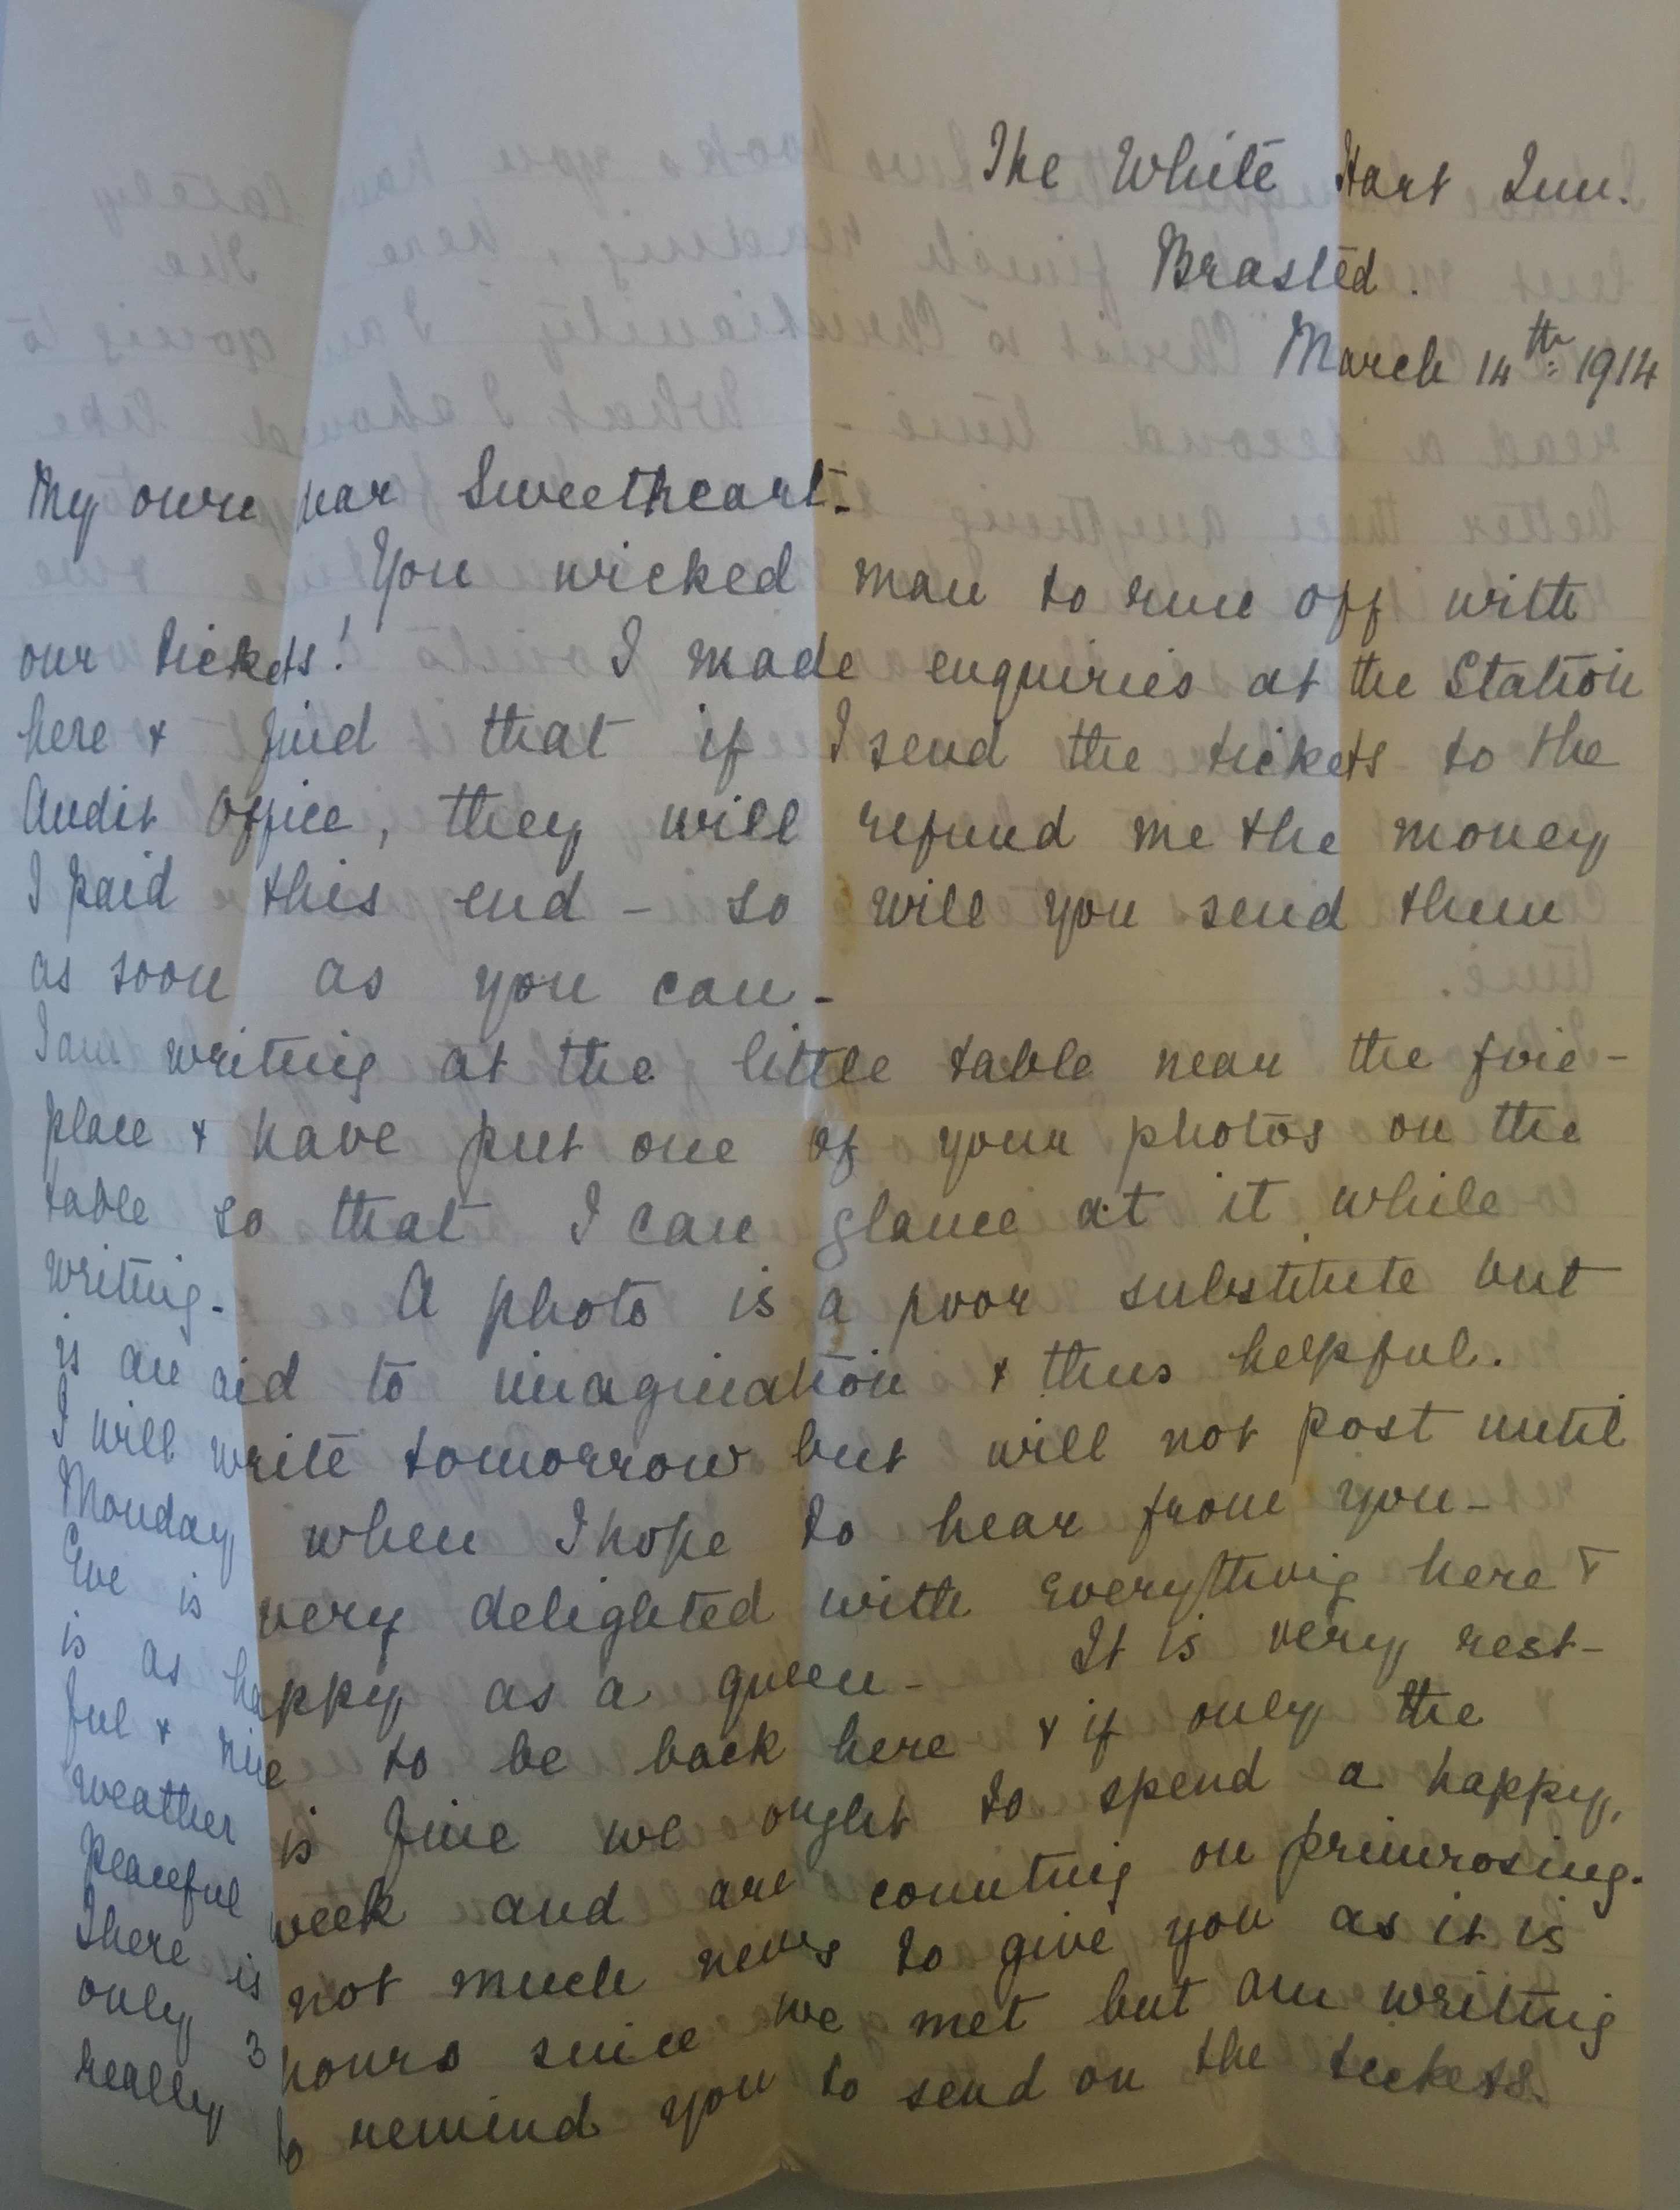 The White Hart Inn.
Brasted.
March 14th: 1914
My own dear Sweetheart-
You wicked man to run off with
our tickets! I made enquiries at the Station
here & find that if I send the tickets to the
Audit Office, they will refund me the money
I paid this end - so will you send them
as soon as you can -
I am writing at the little table near the fire-
place & have put one of your photos on the
table so that I can glance at it while
writing. A photo is a poor substitute but
is an aid to imagination & thus helpful.
I will write tomorrow but will not post until
Monday when I hope to hear from you -
Eve is very delighted with everything here &
is as happy as a queen - It is very rest-
ful & nice to be back here & if only the
weather is fine we ought to spend a happy,
peaceful week and are counting on primrosing.
There is not much news to give you as it is
only 3 hours since we met but am writing
really to remind you to send on the tickets.